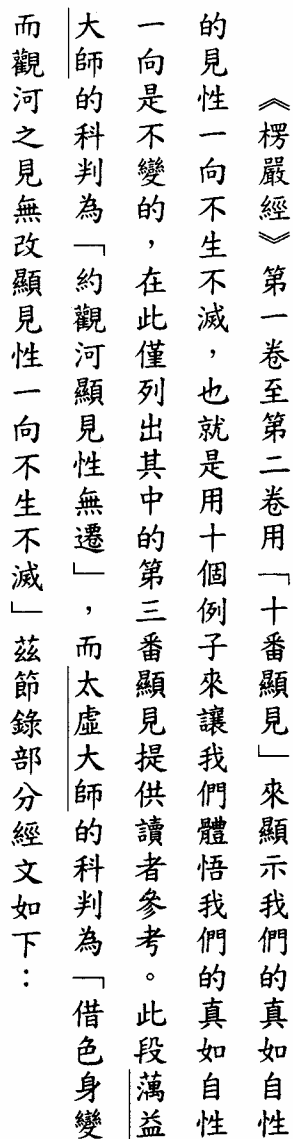 《楞嚴經》第一卷至第二卷用「十番顯見」來顯示我們的真如自性
的見性一向不生不滅，也就是用十個例子來讓我們體悟我們的真如自性
一向是不變的，在此僅列出其中的第三番顯見提供讀者參考。此段蕅益
大師的科判為「約觀河顯見性無遷」，而太虛大師的科判為「借色身變
而觀河之見無改顯見性一向不生不滅」茲節錄部分經文如下：